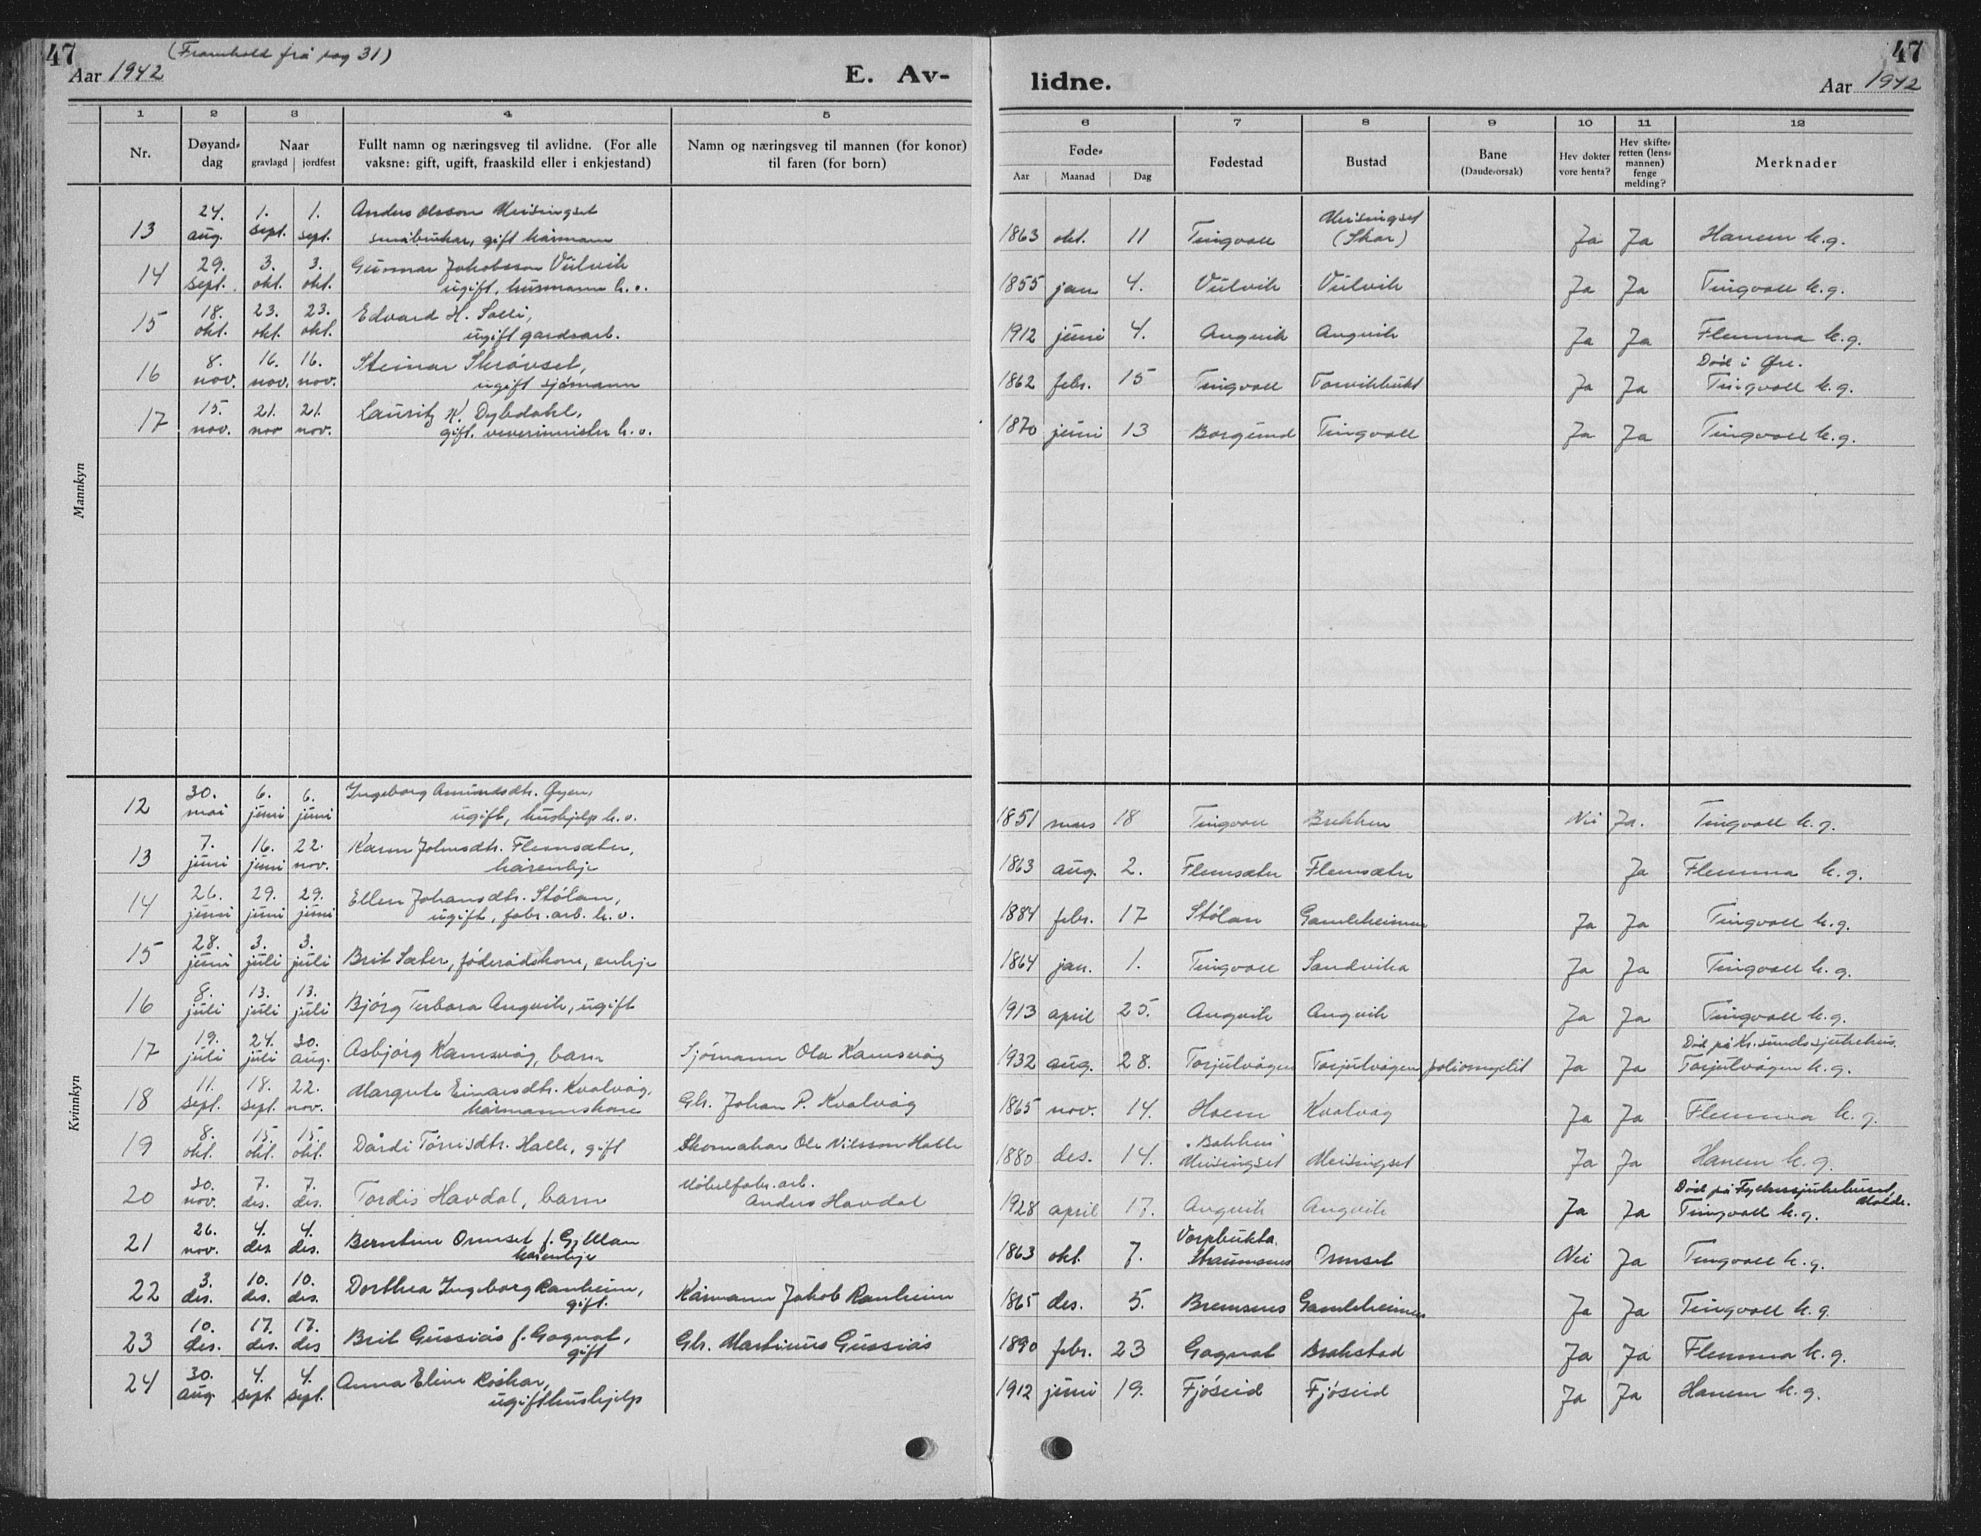 47
(Framhald frå pag 31)
Aar 1942
E. Av-
lidne.
47
Aar 1942
1 2 3 4 5
6 7 8 9 10 11 12
Nr.
Døyand-dag
Naar
gravlagd | jordfest
Fullt namn og næringsveg til avlidne. (For alle
vaksne: gift, ugift, fraaskild eller i enkjestand)
Namn og næringsveg til mannen (for konor)
til faren (for born)
Føde-
Aar | Maanad | Dag
Fødestad
Bustad
Bane
(Daudsorsak)
Hev dokter
vore henta?
Hev skifte-
retten (lens-
mannen)
fenge
melding?
Merknader
Mannkyn
13 24. aug. 1. sept. 1. sept. Anders Olsson Meisingset
småbrukar, gift kårmann
1863 okt. 11 Tingvoll Meisingset (Skar) Ja Ja Hanem k.g.
14 29. sept. 3. okt. 3. okt. Gunnar Jakobsson Vulvik
ugift, husmann k.v.
1855 jan 4. Vulvik Vulvik Ja Ja Tingvoll k.g.
15 18. okt. 23. okt. 23. okt. Edvard H. Solli,
ugift gardsarb.
1912 juni 4. Angvik Angvik Ja Ja Flemma k.g.
16 8. nov. 16. nov. 16. nov. Steinar Skrøvset,
ugift sjømann
1862 febr. 15 Tingvoll Torvikbukt Ja Ja Død i Øre.
Tingvoll k.g.
17 15. nov. 21. nov 21. nov. Lauritz K. Dybdahl,
gift. veverimeister k.v.
1870 juni 13 Borgund Tingvoll Ja Ja Tingvoll k.g.
Kvinnkyn
12 30. mai 6. juni 6. juni Ingeborg Amundsdtr. Øyen,
ugift, hushjelp k.v.
1851 mars 18 Tingvoll Brekken Nei Ja. Tingvoll k.g.
13 7. juni 16. juni 22. nov. Karen Johnsdtr. Flemsæter,
kårenkje
1863 aug. 2. Flemsæter Flemsæter Ja Flemma k.g.
14 26. juni 29. juni 29. juni Ellen Johansdtr. Stølan,
ugift, fabr.arb. k.v.
1884 febr. 17 Stølan Gamleheimen Ja Ja Tingvoll k.g.
15 28. juni 3. juli 3. juli Brit Sæter, føderådskone, enkje
1864 jan. 1. Tingvoll Sandvika Ja Ja Tingvoll k.g.
16 8. juli 13. juli 13. juli Bjørg Torbora Angvik, ugift
1913 april 25. Angvik Angvik Ja Ja Tingvoll k.g.
17 19. juli 24. juli 30. aug. Asbjørg Kamsvåg, barn Sjømann Ola Kamsvåg
1932 aug. 28. Torjulvågen Torjulvågen poliomyelit Ja Ja Død på Kr.sunds sjukehus.
Torjulvågen k.g.
18 11. sept. 18. sept. 22. nov. Margrete Einarsdtr. Kvalvåg,
kårmannskone Gbr. Johan P. Kvalvåg
1865 nov. 14. Hoem Kvalvåg Ja Ja Flemma k.g.
19 8. okt. 15. okt. 15. okt. Dårdi Tørrisdtr. Halle, gift Skomakar Ole Nilsson Halle
1880 des. 14. "Bakken" Meisingset Meisingset Ja Ja Hanem k.g.
20 30. nov. 7. des. 7. des. Tordis Havdal, barn Møbelfabr.arb.
Anders Havdal
1928 april 17. Angvik Angvik Ja Ja Død på Fylkessjukehuset, Molde.
Tingvoll k.g.
21 26. nov. 4. des 4. des. Berntine Ormset f.
kårenkje
1863 okt 7. Vorpbukta, Straumsnes Ormset Nei Ja Tingvoll k.g.
22 3. des. 10. des. 10. des. Dorthea Ingeborg Ranheim,
gift. Kårmann Jakob Ranheim
1865 des. 5. Bremsnes Gamleheimen Ja Ja Tingvoll k.g.
23 10. des. 17. des. 17. des Brit Gussiås f. Gagnat,
gift Gbr. Martinus Gussiås
1890 febr. 23 Gagnat Brakstad Ja Ja Flemma k.g.
24 30. aug. 4. sept. 4. sept. Anna Eline Røskar,
ugift hushjelp
1912 juni 19. Fjøseid Fjøseid Ja Ja Hanem k.g.